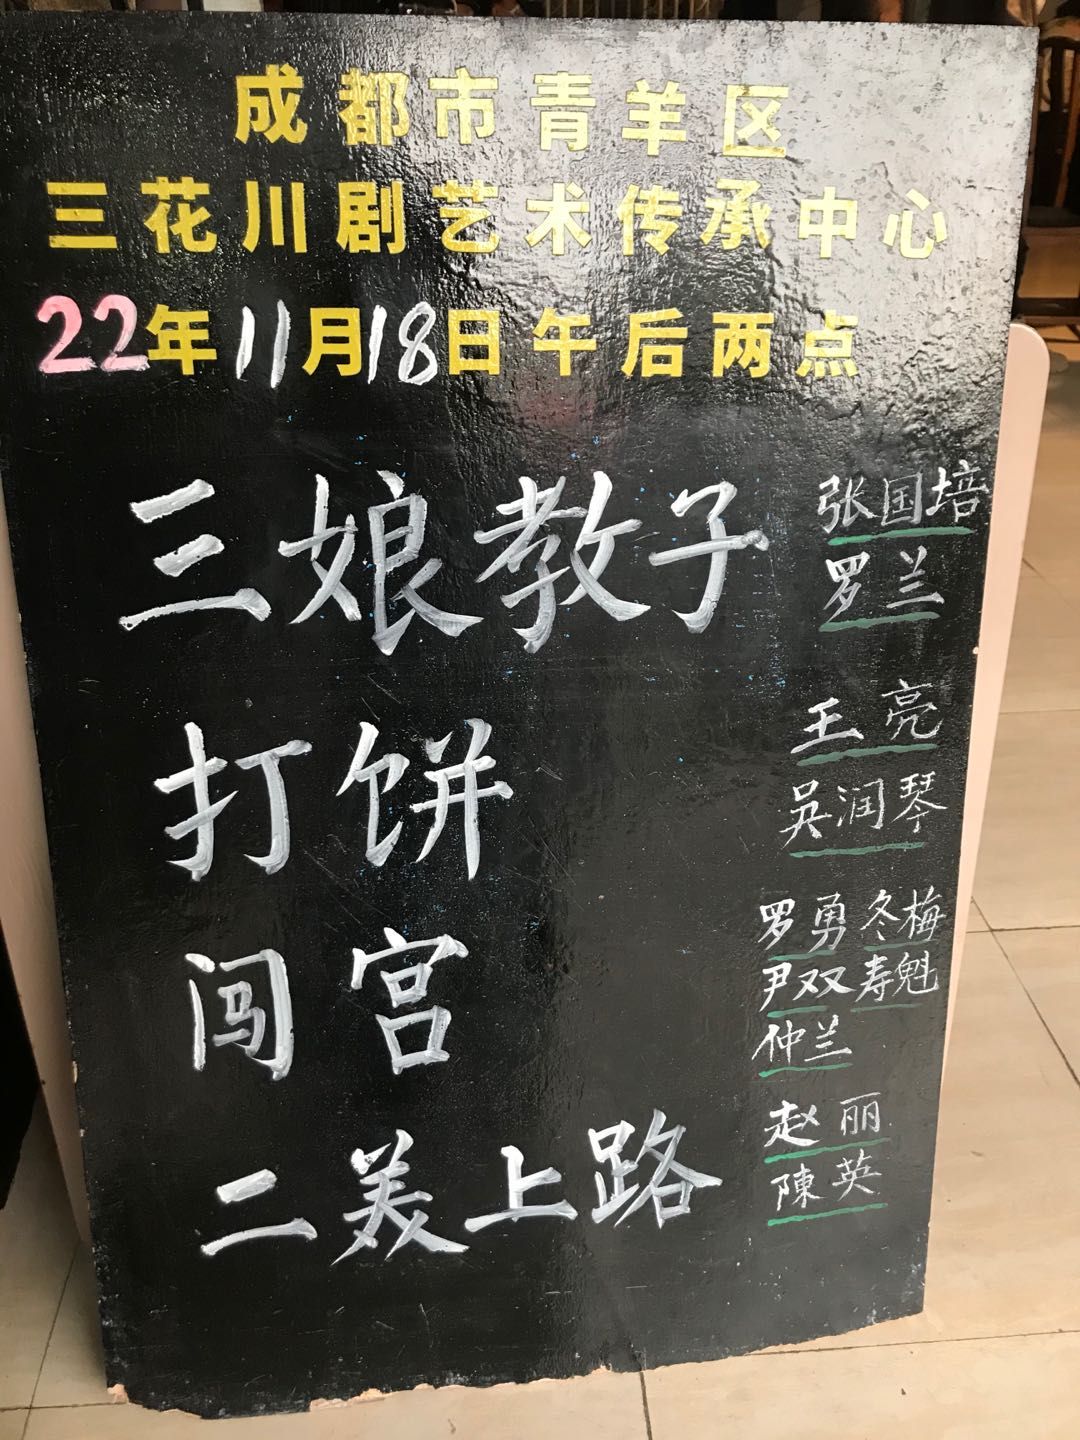 成都市青羊区
三花川剧艺术传承中心
22年11月18日午后两点
三娘教子
张国培
罗兰
打饼
王亮
吴润琴
闯宫
罗勇 冬梅
尹双 寿魁
仲兰
二美上路
赵丽
陳英